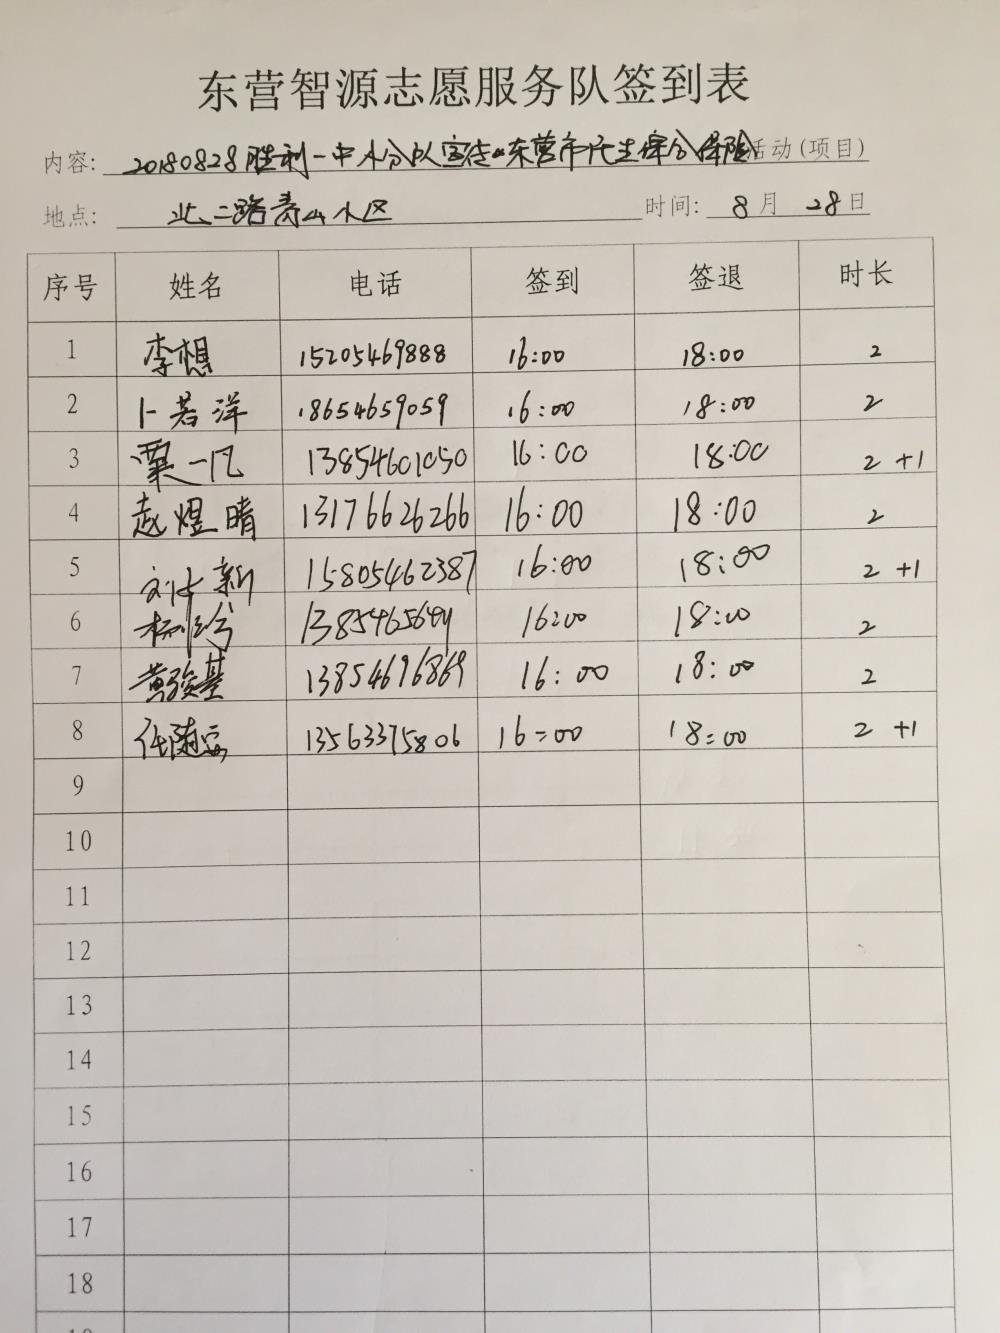 东营智源志愿服务队签到表
内容: 20180828胜利一中小分队宣传"东营市民生综合保险 活动(项目)
地点: 北二路青山小区 时间: 8月 28日
序号 姓名 电话 签到 签退 时长
1 李想 15205469888 16:00 18:00 2
2 卜若洋 18654659059 16:00 18:00 2
3 栗一凡 13854601050 16:00 18:00 2 +1
4 赵煜晴 13176626266 16:00 18:00 2
5 新 15805462387 16:00 18:00 2 +1
6 16:00 18:00 2
7 黄骏基 13854696869 16:00 18:00 2
8 任 13563375806 16:00 18:00 2 +1
9
10
11
12
13
14
15
16
17
18